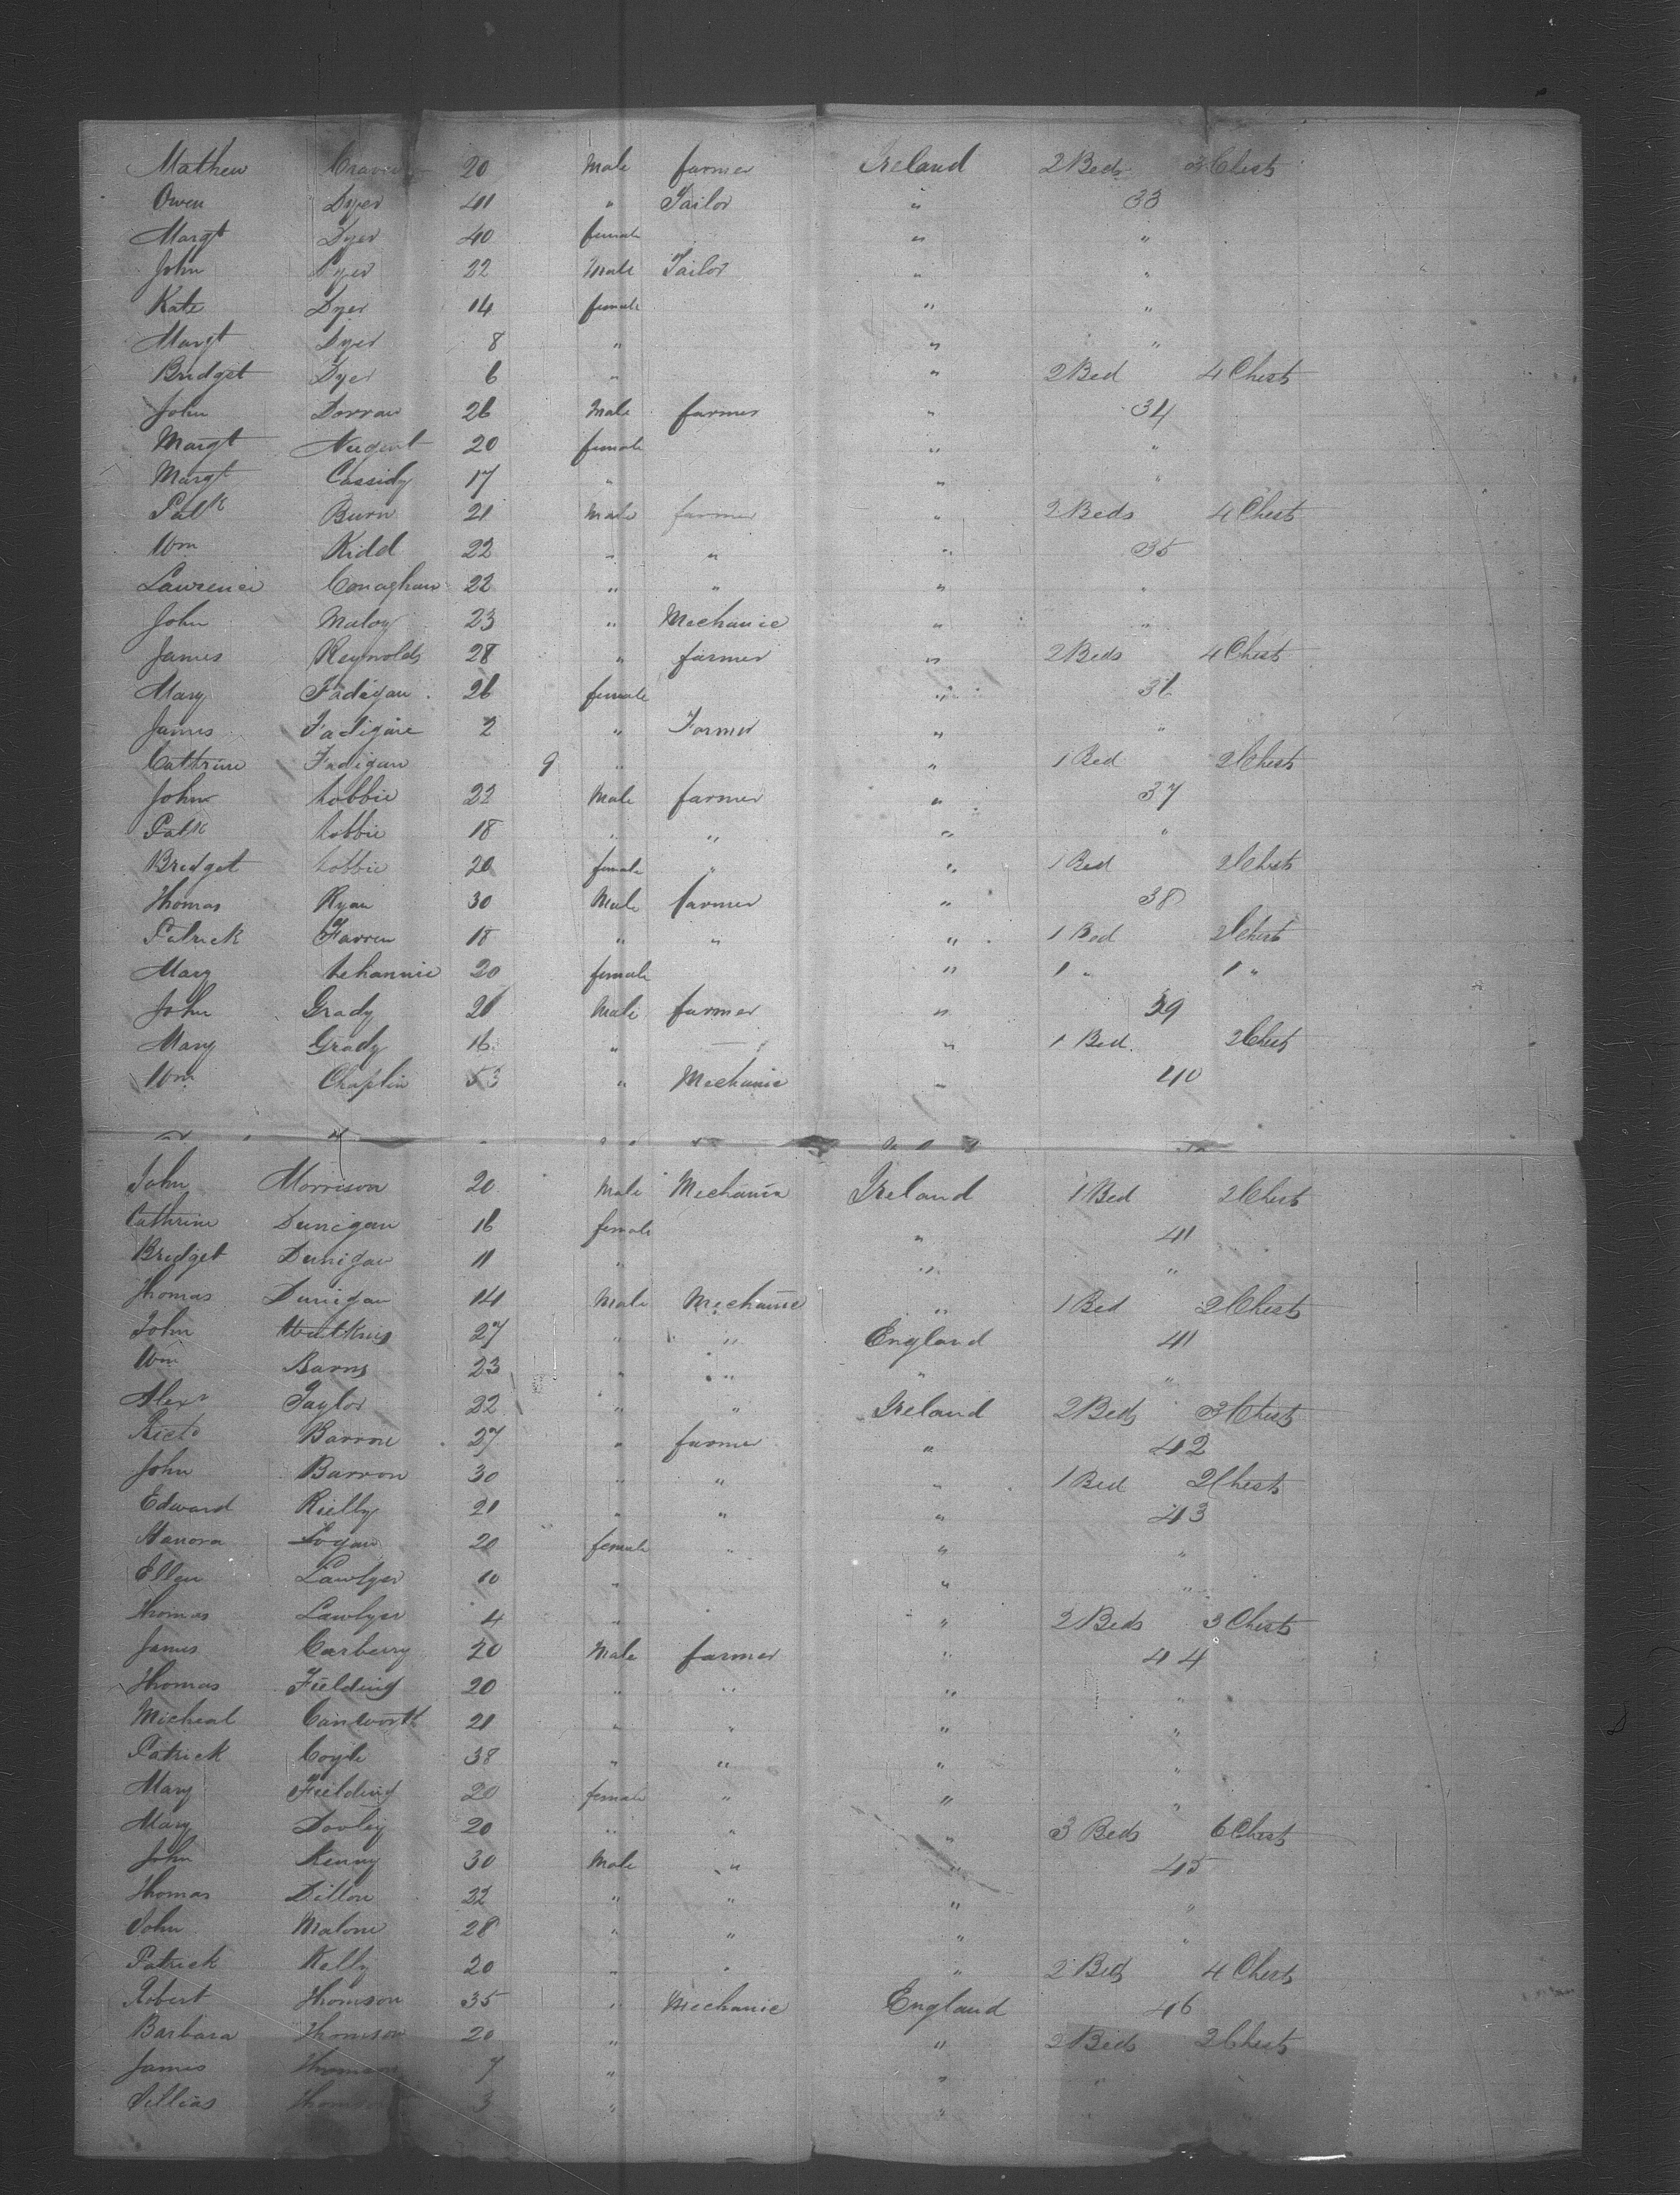 Mathew Craven 20 Male farmer Ireland 2 Beds 3 Chests
Owen Dyer 41 " Tailor " 33
Margt Dyer 40 female " "
John Dyer 22 Male Tailor " "
Kate Dyer 14 female " "
Margt Dyer 8 " " "
Bridget Dyer 6 " " 2 Bed 4 Chests
John Dorran 26 Male farmer " 34
Margt Nugent 20 female " "
Margt Cassidy 17 " " "
Patk Burn 21 Male farmer " 2 Beds 4 Chests
Wm Kidd 22 " " " 35
Lawrence Conaghan 22 " " " "
John Maloy 23 " Mechanic " "
James Reynolds 28 " farmer " 2 Beds 4 Chests
Mary Fadigan 26 female " 36
James Fadigan 2 " Farmer " "
Cathrine Fadigan 9 " " 1 Bed 2 Chests
John 22 Male farmer " 37
Patk 18 " " " "
Bridget 20 female " " 1 Bed 2 Chests
Thomas Ryan 30 Male farmer " 38
Patrick Farren 18 " " " 1 Bed 2 Chests
Mary 20 female " 1 " 1 "
John Grady 26 Male farmer " 39
Mary Grady 16 " — " 1 Bed 2 Chests
Wm Chaplin 53 " Mechanic " 40
John Morrison 20 Male Mechanic Ireland 1 Bed 2 Chests
Cathrine Dunigan 16 female " 41
Bridget Dunigan 11 " " "
Thomas Dunigan 14 Male Mechanic " 1 Bed 2 Chests
John Watkins 27 " " England 41
Wm Barns 23 " " " "
Alexr Taylor 22 " " Ireland 2 Beds 3 Chests
Richd Barron 27 " farmer " 42
John Barron 30 " " " 1 Bed 2 Chests
Edward Rielly 21 " " " 43
Hanora Logan 20 female " " "
Ellen Lawlyer 10 " " "
Thomas Lawlyer 4 " " 2 Beds 3 Chests
James Carberry 20 Male farmer " 44
Thomas Fielding 20 " " " "
Micheal 21 " " " "
Patrick Coyle 38 " " " "
Mary Fielding 20 female " " "
Mary Dooley 20 " " " 3 Beds 6 Chests
John Kenny 30 Male " " 45
Thomas Dillon 22 " " " "
John Malone 28 " " " "
Patrick Kelly 20 " " " 2 Beds 4 Chests
Robert Thomson 35 " Mechanic England 46
Barbara Thomson 20 " " 2 Beds 2 Chests
James Thomson 7 " " "
Thomson 3 " "